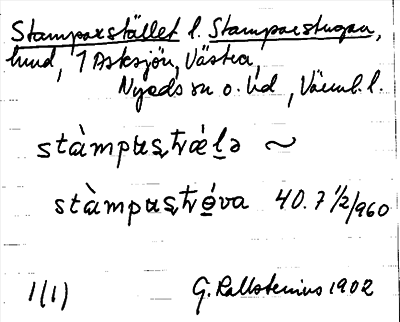 Stamparstället l. Stamparstugan,
hmd, 1 Asksjön, Västra,
Nyeds sn o. hd, Värml. l.
stàmpaʂtǽlə ~
stàmpaʂtǿva 40.7 1/2/960
1(1) G. Kallstenius 1902